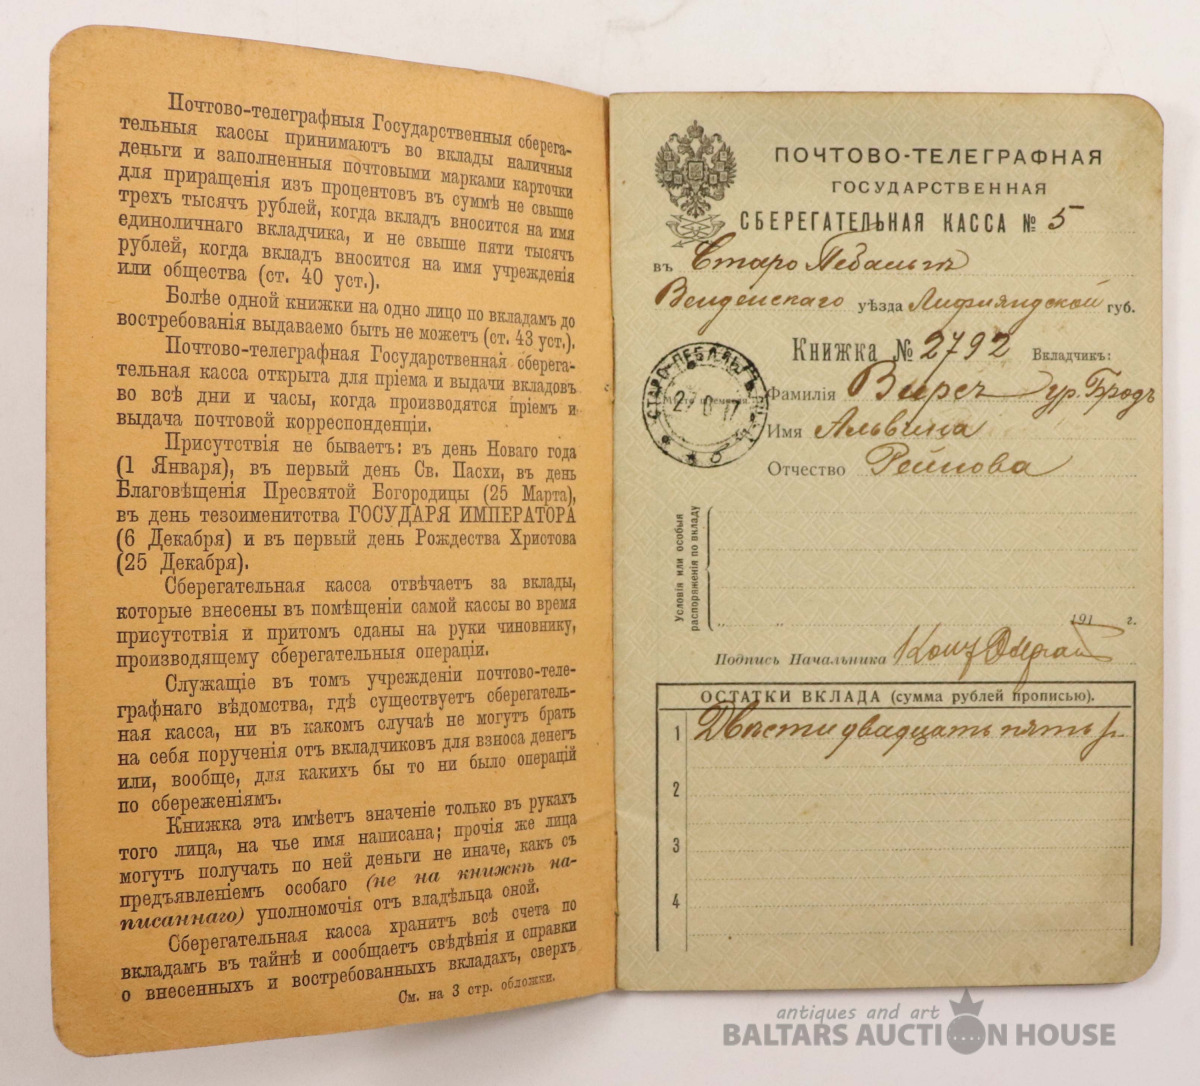 Почтово-телеграфныя Государственныя сберега-
тельныя кассы принимаютъ во вклады наличныя
деньги и заполненныя почтовыми марками карточки
для приращенія изъ процентовъ въ суммѣ не свыше
трехъ тысячъ рублей, когда вкладъ вносится на имя
единоличнаго вкладчика, и не свыше пяти тысячъ
рублей, когда вкладъ вносится на имя учрежденія
или общества (ст. 40 уст.).
Болѣе одной книжки на одно лицо по вкладамъ до
востребованія выдаваемо быть не можетъ (ст. 43 уст.).
Почтово-телеграфная Государственная сберега-
тельная касса открыта для пріема и выдачи вкладовъ
во всѣ дни и часы, когда производятся пріемъ и
выдача почтовой корреспонденціи.
Присутствія не бываетъ: въ день Новаго года
(1 Января), въ первый день Св. Пасхи, въ день
Благовѣщенія Пресвятой Богородицы (25 Марта),
въ день тезоименитства ГОСУДАРЯ ИМПЕРАТОРА
(6 Декабря) и въ первый день Рождества Христова
(25 Декабря).
Сберегательная касса отвѣчаетъ за вклады,
которые внесены въ помѣщеніи самой кассы во время
присутствія и притомъ сданы на руки чиновнику,
производящему сберегательныя операціи.
Служащіе въ томъ учрежденіи почтово-теле-
графнаго вѣдомства, гдѣ существуетъ сберегатель-
ная касса, ни въ какомъ случаѣ не могутъ брать
на себя порученія отъ вкладчиковъ для взноса денегъ
или, вообще, для какихъ бы то ни было операцій
по сбереженіямъ.
Книжка эта имѣетъ значеніе только въ рукахъ
того лица, на чье имя написана; прочія же лица
могутъ получать по ней деньги не иначе, какъ съ
предъявленіемъ особаго (не на книжкѣ на-
писаннаго) уполномочія отъ владѣльца оной.
Сберегательная касса хранитъ всѣ счета по
вкладамъ въ тайнѣ и сообщаетъ свѣдѣнія и справки
о внесенныхъ и востребованныхъ вкладахъ, сверхъ
См. на 3 стр. обложки.
ПОЧТОВО-ТЕЛЕГРАФНАЯ
ГОСУДАРСТВЕННАЯ
СБЕРЕГАТЕЛЬНАЯ КАССА № 5
въ Старо Пебальгѣ
Венденскаго уѣзда Лифляндской губ.
Книжка № 2792 Вкладчикъ:
СТАРО-ПЕБАЛЬГЪ
Фамилія Вирсъ ур. Бродъ
Имя Альвина
Отчество Рейнова
Условія или особыя
распоряженія по вкладу
191 г.
Подпись Начальника
ОСТАТКИ ВКЛАДА (сумма рублей прописью).
1 Двѣсти двадцать пять р.
2
3
4
antiques and art
BALTARS AUCTION HOUSE